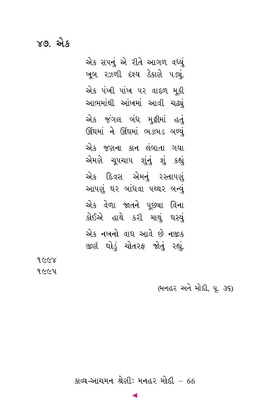 ૪૭. એક
એક સપનું એ રીતે આગળ વધ્યું
ખૂબ રઝળી દશ્ય ઠેકાણે પડ્યું.
એક પંખી પાંખ પર વાદળ મૂકી
આભમાંથી આંખમાં આવી ચઢ્યું
એક જંગલ બંધ મુઠ્ઠીમાં હતું
ઊંઘમાં ને ઊંઘમાં ભડભડ બળ્યું
એક જણના કાન લંબાતા ગયા
એમણે ચૂપચાપ શુંનું શું કહ્યું
એક દિવસ એમનું રસ્તાપણું
આપણું ઘર બાંધવા પથ્થર બન્યું
એક વેળા જાતને પૂછ્યા વિના
કોઈએ હાથે કરી માથું ધસ્યું
એક નખનો વાઘ આવે છે નજીક
જીર્ણ થોડું ચોતરફ જોતું રહ્યું.
૧૯૯૪
૧૯૯૫
(મનહર અને મોદી, પૃ. ૩૬)
કાવ્ય-આચમન શ્રેણીઃ મનહર મોદી – 66